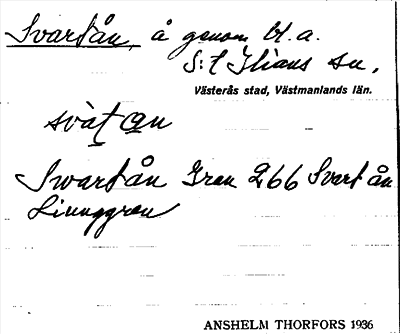 Svartån, å genom bl.a.
S:t Ilians sn.
Västerås stad, Västmanlands län.
svàt an
Swartån Gran 266 Svartån
Liunggren
ANSHELM THORFORS 1936